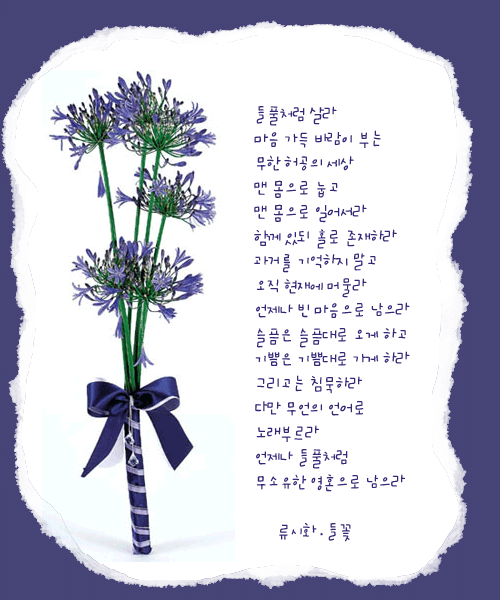 들풀처럼 살라
마음 가득 바람이 부는
무한 허공의 세상
맨 몸으로 눕고
맨 몸으로 일어서라
함께 있되 홀로 존재하라
과거를 기억하지 말고
오직 현재에 머물라
언제나 빈 마음으로 남으라
슬픔은 슬픔대로 오게 하고
기쁨은 기쁨대로 가게 하라
그리고는 침묵하라
다만 무언의 언어로
노래부르라
언제나 들풀처럼
무소유한 영혼으로 남으라
류시화 . 들꽃